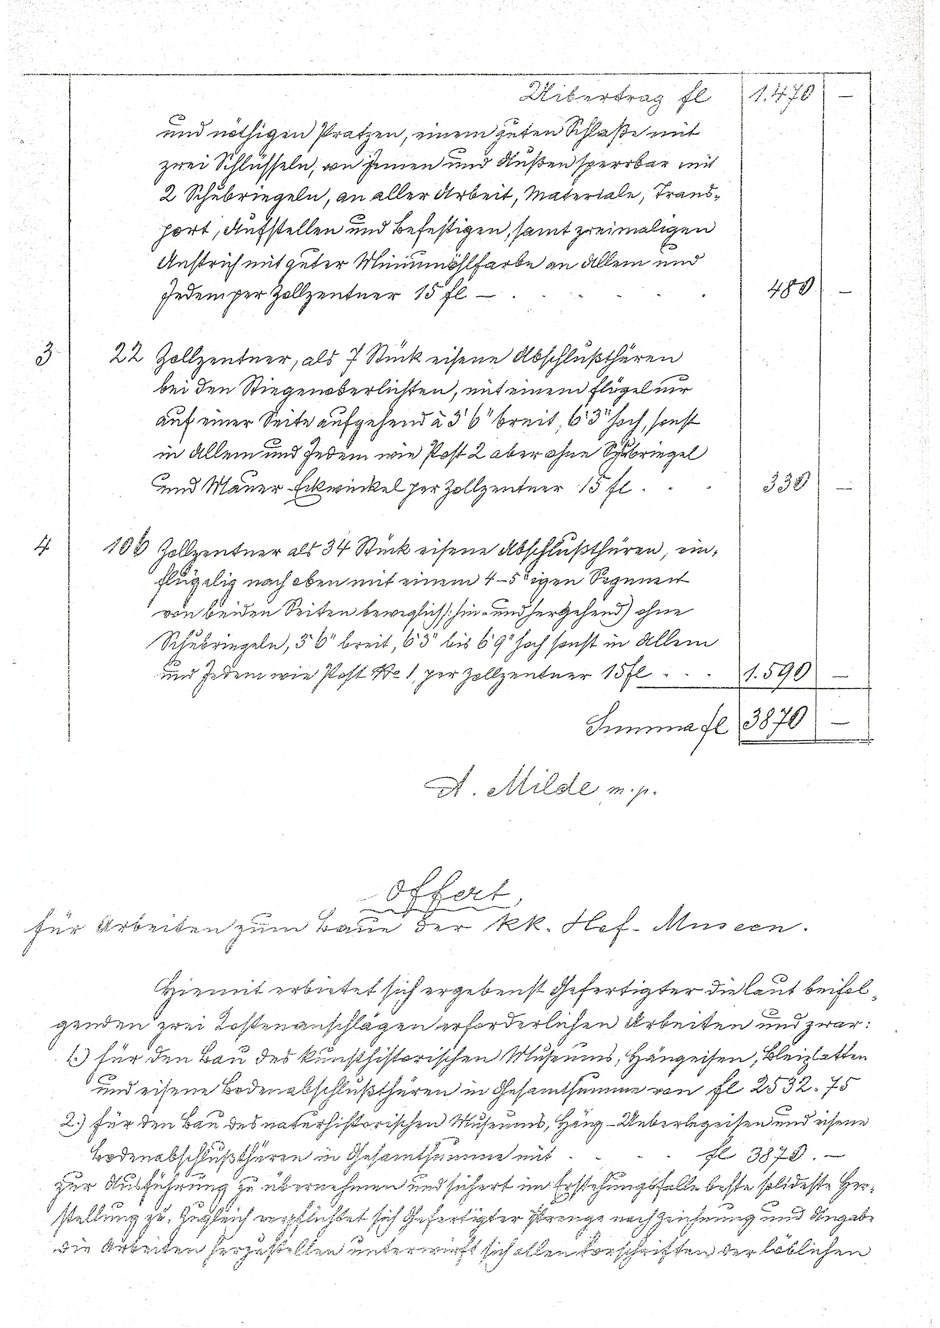 Uibertrag fl 1.470 —
und nöthigen Pratzen, einem guten Schloße mit
zwei Schlüsseln, von Jnnen und Außen sperrbar mit
2 Schubriegeln, an aller Arbeit, Materiale, Trans-
port, Aufstellen und Befestigen, samt zweimaligen
Anstrich mit guter Miniumöhlfarbe an Allem und
Jedem per Zollzentner 15 fl — . . . . . 480 —
3 22 Zollzentner, als 7 Stück eisene Abschlußthüren
bei den Stiegenoberlichten, mit einem Flügel nur
auf einer Seite aufgehend à 3'6" breit, 6'3" hoch, sonst
in Allem und Jedem wie Post 2 aber ohne Schubriegel
und Mauer-Eckwinkel per Zollzentner 15 fl . . . 330 —
4 106 Zollzentner als 34 Stück eisene Abschlußthüren, ein-
flügelig nach oben mit einem 4–5"igen Segment
von beiden Seiten beweglich /: hin- und hergehend) ohne
Schubriegeln, 3'6" breit, 6'3" bis 6'9" hoch sonst in Allem
und Jedem wie Post No 1, per Zollzentner 15 fl . . . 1.590 —
Summa fl 3870 —
A. Milde m.p.
Offert,
für Arbeiten zum Baue der kk. Hof-Museen.
Hiemit erbietet sich ergebenst Gefertigter die laut beifol-
genden zwei Kostenanschlägen erforderlichen Arbeiten und zwar:
1.) für den Bau des kunsthistorischen Museums, Hängeisen, Bleiplatten
und eisene Bodenabschlußthüren in Gesamtsumme von fl 2532.75
2.) für den Bau des naturhistorischen Museums, Häng-Ueberlegeisen und eisene
Bodenabschlußthüren in Gesamtsumme mit . . . . . fl 3870.—
zur Ausführung zu übernehmen und sichert im Erstehungsfalle beste solideste Her-
stellung zu. Zugleich verpflichtet sich Gefertigter strenge nach Zeichnung und Angabe
die Arbeiten herzustellen unterwirft sich allen Vorschriften der löblichen